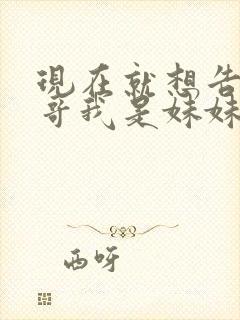 現在就想告
哥我是妹妹
西呀